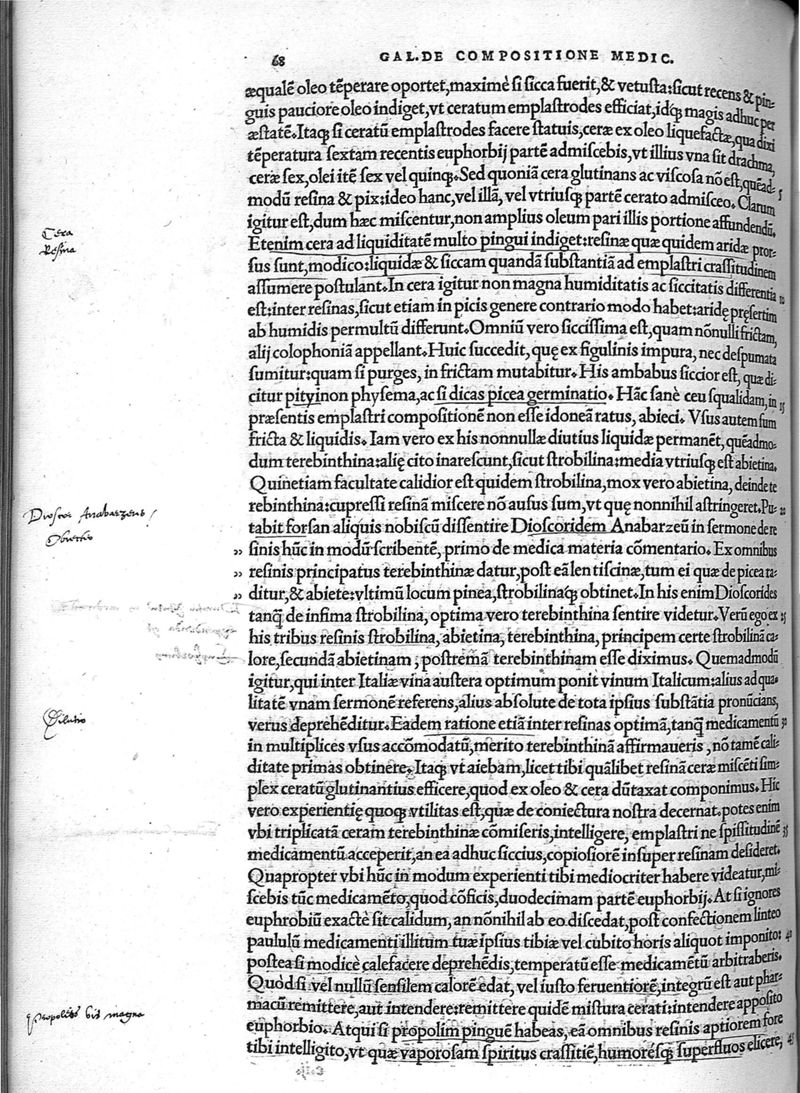 68
GAL. DE COMPOSITIONE MEDIC.
æqualē oleo tēperare oportet, maximè si sicca fuerit, & vetusta: sicut recens & pin-
guis pauciore oleo indiget, vt ceratum emplastrodes efficiat, idq; magis adhuc per
æstatē. Itaq; si ceratū emplastrodes facere statuis, ceræ ex oleo liquefactæ, qua dixi
tēperatura sextam recentis euphorbij partē admiscebis, vt illius vna sit drachma,
ceræ sex, olei itē sex vel quinq;. Sed quoniā cera glutinans ac viscosa nō est, quēad-
5
modū resina & pix: ideo hanc, vel illā, vel vtriusq; partē cerato admisceo. Clarum
igitur est, dum hæc miscentur, non amplius oleum pari illis portione affundendū.
Cera
Etenim cera ad liquiditatē multo pingui indiget: resinæ quæ quidem aridæ pror-
Resina
sus sunt, modico: liquidæ & siccam quandā substantiā ad emplastri crassitudinem
assumere postulant. In cera igitur non magna humiditatis ac siccitatis differentia
10
est: inter resinas, sicut etiam in picis genere contrario modo habet: aridę pręsertim
ab humidis permultū differunt. Omniū vero siccissima est, quam nōnulli frictam,
alij colophoniā appellant. Huic succedit, quę ex figulinis impura, nec despumata
sumitur: quam si purges, in frictam mutabitur. His ambabus siccior est, quæ di-
citur pityinon physema, ac si dicas picea germinatio. Hāc sanè ceu squalidam, in
15
præsentis emplastri compositionē non esse idoneā ratus, abieci. Vsus autem sum
fricta & liquidis. Iam vero ex his nonnullæ diutius liquidæ permanēt, quēadmo-
dum terebinthina: alię cito inarescunt, sicut strobilina: media vtriusq; est abietina.
Quinetiam facultate calidior est quidem strobilina, mox vero abietina, deinde te
rebinthina: cupressi resinā miscere nō ausus sum, vt quę nonnihil astringeret. Pu-
Dioscor Anabarzeus
tabit forsan aliquis nobiscū dissentire Dioscoridem Anabarzeū in sermone de re
,, sinis hūc in modū scribentē, primo de medica materia cōmentario. Ex omnibus
,, resinis principatus terebinthinæ datur, post eā lentiscinæ, tum ei quæ de picea ra-
,, ditur, & abiete: vltimū locum pinea, strobilinaq; obtinet. In his enim Dioscorides
tanq; de infima strobilina, optima vero terebinthina sentire videtur. Verū ego ex
25
his tribus resinis strobilina, abietina, terebinthina, principem certe strobilinā ca-
lore, secundā abietinam, postremā terebinthinam esse diximus. Quemadmodū
igitur, qui inter Italiæ vina austera optimum ponit vinum Italicum: alius ad qua-
litatē vnam sermonē referens, alius absolute de tota ipsius substātia pronūcians,
verus deprehēditur. Eadem ratione etiā inter resinas optimā, tanq; medicamentū
30
in multiplices vsus accōmodatū, merito terebinthinā affirmaueris, nō tamē cali-
ditate primas obtinere. Itaq; vt aiebam, licet tibi quālibet resinā ceræ miscēti sim-
plex ceratū glutinantius efficere, quod ex oleo & cera dūtaxat componimus. Hic
vero experientię quoq; vtilitas est, quæ de coniectura nostra decernat. potes enim
vbi triplicatā ceram terebinthinæ cōmiseris, intelligere, emplastri ne spissitudinē
35
medicamentū acceperit, an ea adhuc siccius, copiosiorē insuper resinam desideret.
Quapropter vbi hūc in modum experienti tibi mediocriter habere videatur, mi-
scebis tūc medicamēto, quod cōficis, duodecimam partē euphorbij. At si ignores
euphrobiū exactè sit calidum, an nōnihil ab eo discedat, post confectionem linteo
paululū medicamenti illitum tuæ ipsius tibiæ vel cubito horis aliquot imponito:
40
postea si modicè calefacere deprehēdis, temperatū esse medicamētū arbitraberis.
Quòd si vel nullū sensilem calorē edat, vel iusto feruentiorē, integrū est aut phar-
macū remittere, aut intendere: remittere quidē mistura cerati: intendere apposito
propoleos vis magna
euphorbio. Atqui si propolim pinguē habeas, eā omnibus resinis aptiorem fore
tibi intelligito, vt quæ vaporosam spiritus crassitiē, humorésq; superfluos elicere,
45